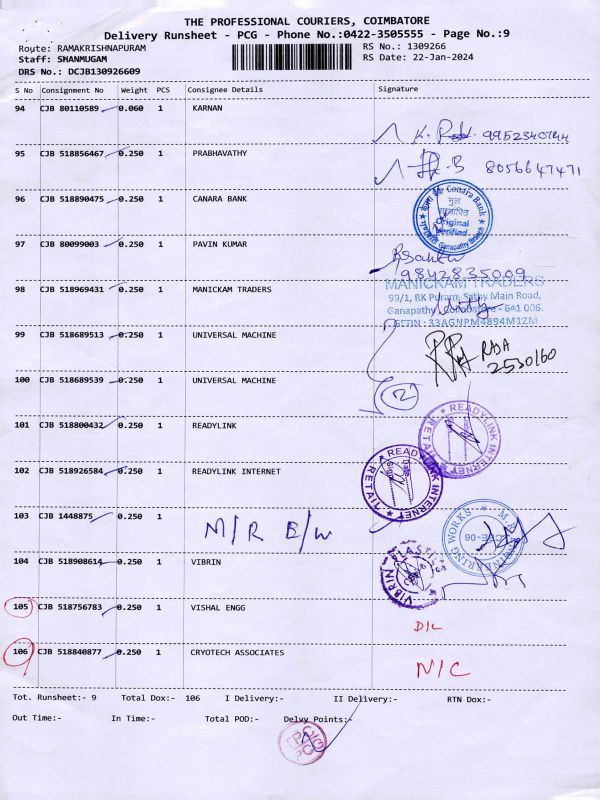 THE PROFESSIONAL COURIERS, COIMBATORE
Delivery Runsheet - PCG - Phone No.:0422-3505555 - Page No.:9
Route: RAMAKRISHNAPURAM RS No.: 1309266
Staff: SHANMUGAM RS Date: 22-Jan-2024
DRS No.: DCJB130926609
S No Consignment No Weight PCS Consignee Details Signature
94 CJB 80110589 0.060 1 KARNAN
K.
95 CJB 518856467 0.250 1 PRABHAVATHY
8056647471
96 CJB 518890475 0.250 1 CANARA BANK
Canara Bank
मूल
Original
Verified
Ganapathy Branch
97 CJB 80099003 0.250 1 PAVIN KUMAR
9842835009
98 CJB 518969431 0.250 1 MANICKAM TRADERS
MANICKAM TRADERS
99/1, RK Puram, Sathy Main Road,
Ganapathy, Coimbatore - 641 006.
GSTIN : 33AGNPM4894M1ZM
99 CJB 518689513 0.250 1 UNIVERSAL MACHINE
RAJA
2530160
100 CJB 518689539 0.250 1 UNIVERSAL MACHINE
2
101 CJB 518800432 0.250 1 READYLINK
READYLINK INTERNET RETAIL
102 CJB 518926584 0.250 1 READYLINK INTERNET
READYLINK INTERNET RETAIL
103 CJB 1448875 0.250 1 M/R E/W
ENGINEERING WORKS
CBE-06
104 CJB 518908614 0.250 1 VIBRIN
VIBRIN PLASTICS
105 CJB 518756783 0.250 1 VISHAL ENGG
D/L
106 CJB 518840877 0.250 1 CRYOTECH ASSOCIATES
N/C
Tot. Runsheet:- 9 Total Dox:- 106 I Delivery:- II Delivery:- RTN Dox:-
Out Time:- In Time:- Total POD:- Delvy Points:-